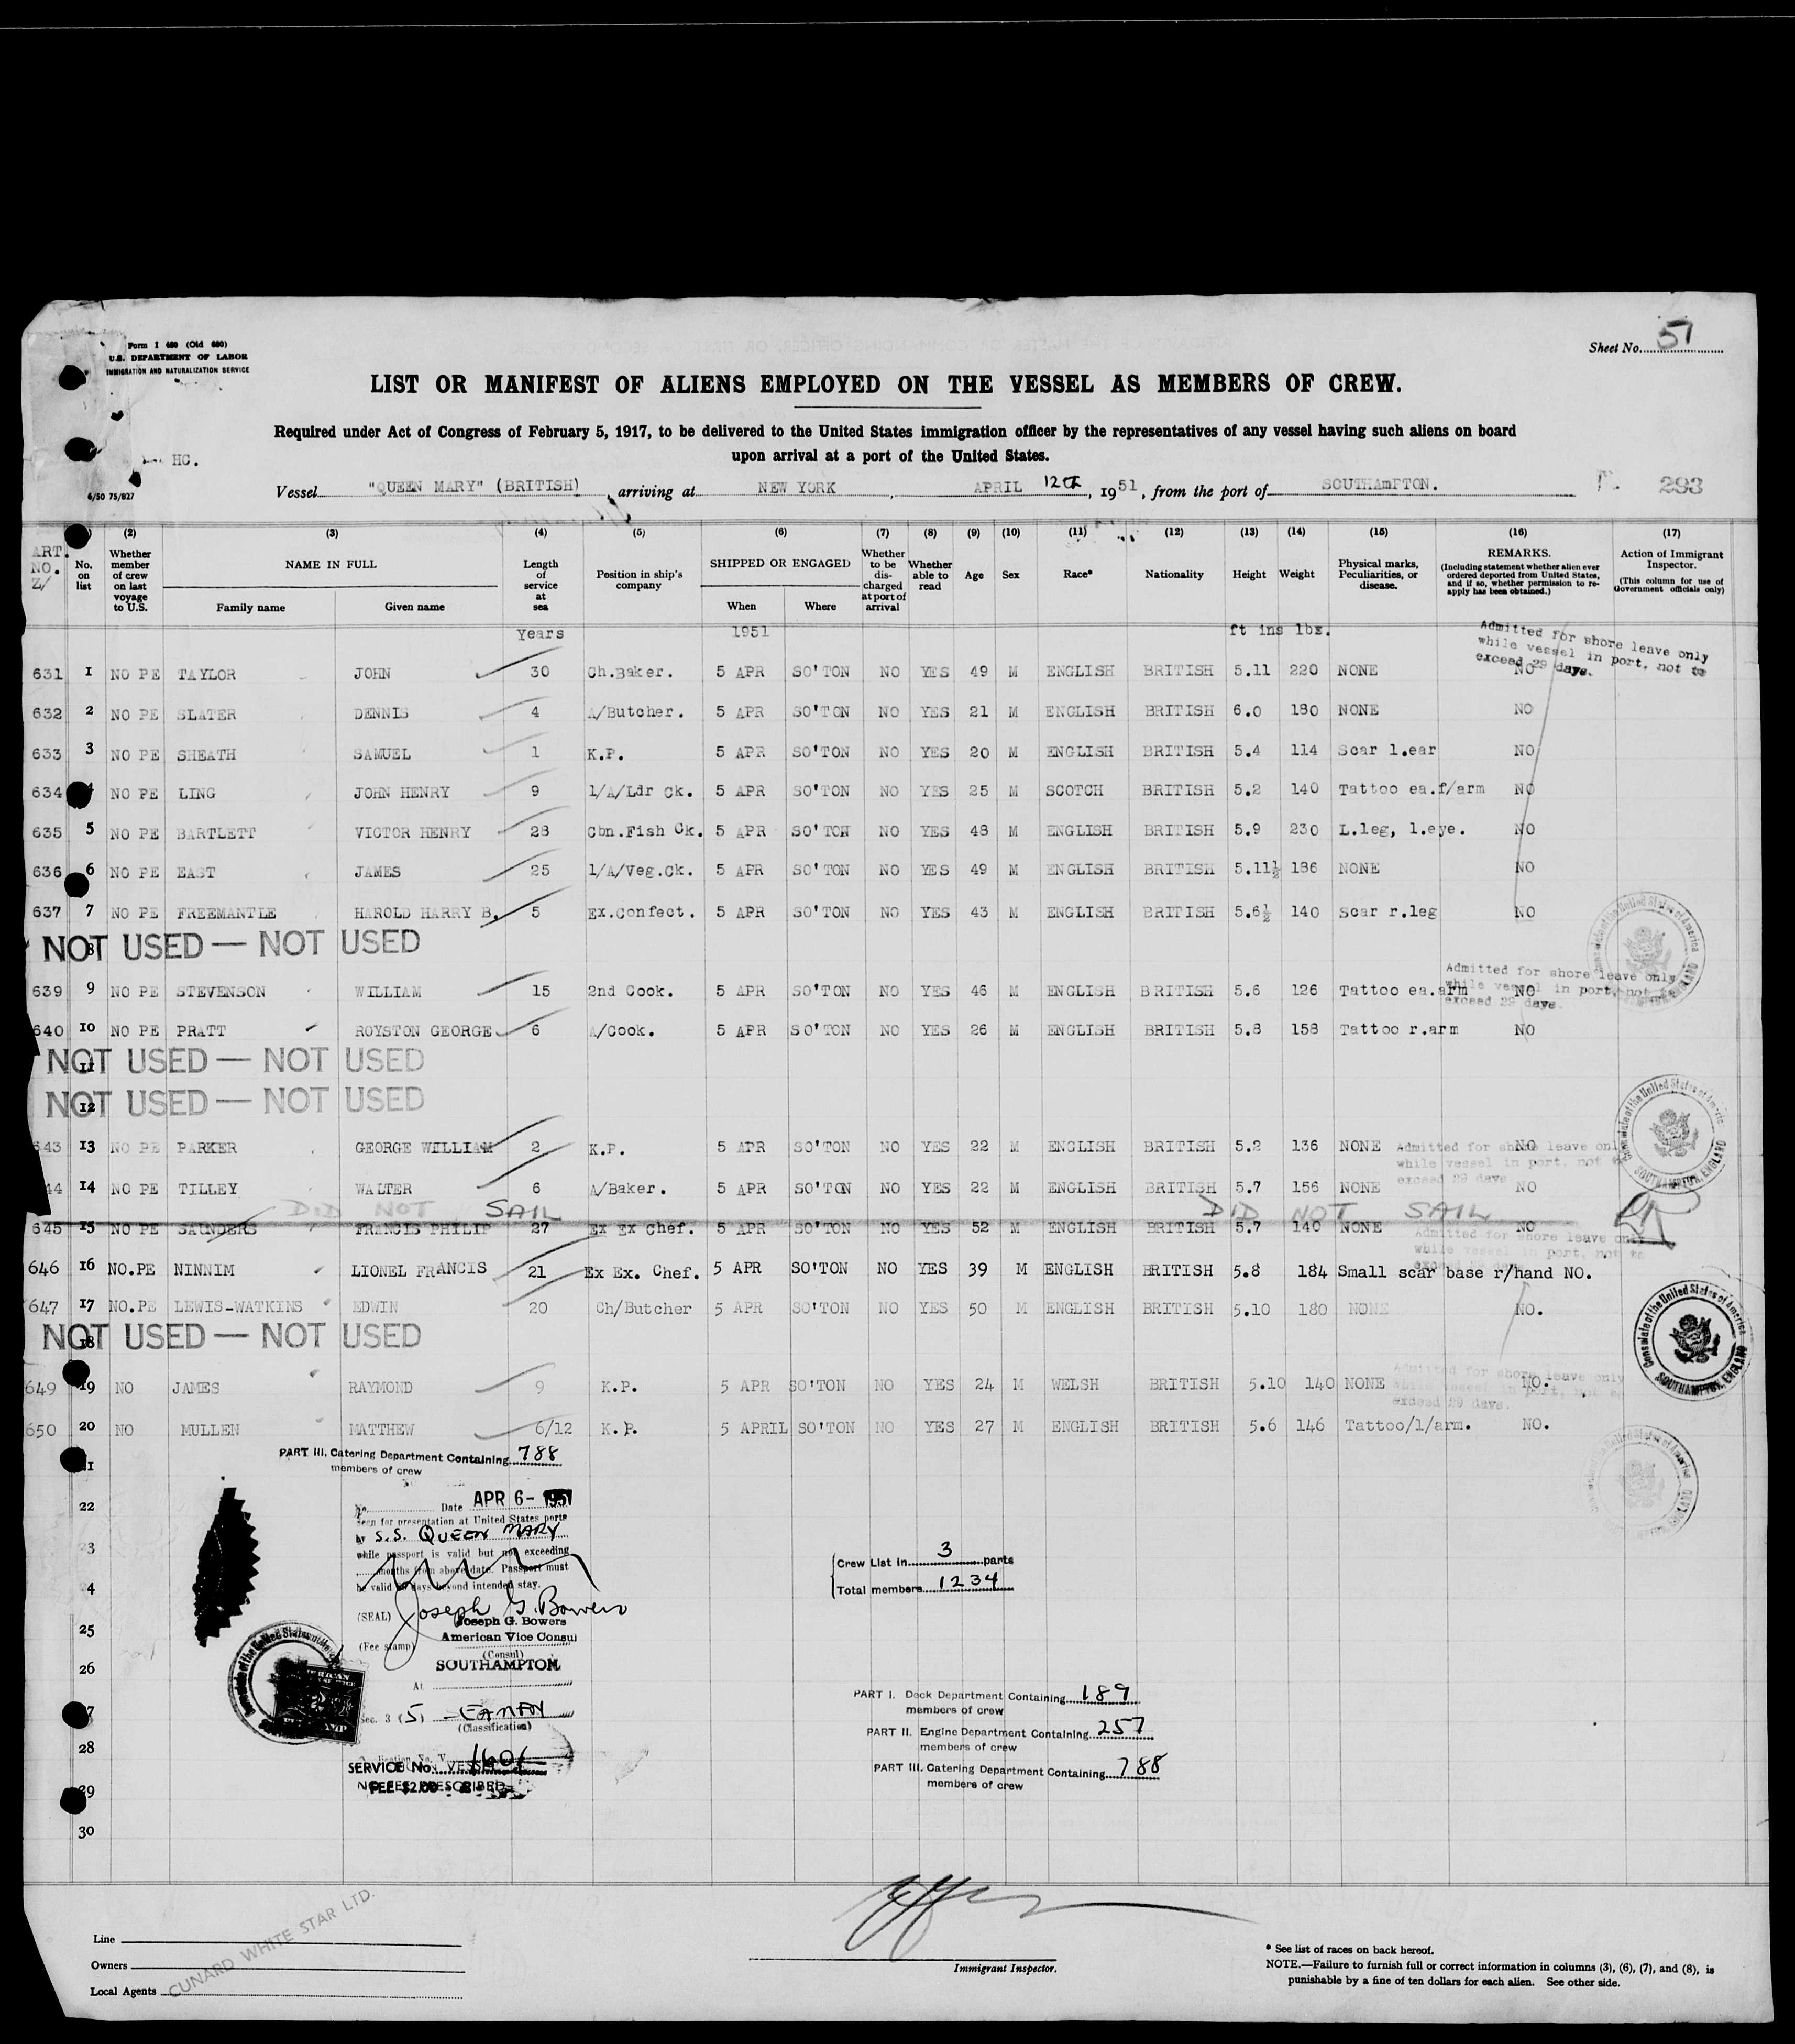 Form I 480 (Old 680)
U.S. DEPARTMENT OF LABOR
IMMIGRATION AND NATURALIZATION SERVICE
Sheet No. 51
LIST OR MANIFEST OF ALIENS EMPLOYED ON THE VESSEL AS MEMBERS OF CREW.
Required under Act of Congress of February 5, 1917, to be delivered to the United States immigration officer by the representatives of any vessel having such aliens on board
upon arrival at a port of the United States.
HC.
6/50 75/827
Vessel "QUEEN MARY" (BRITISH), arriving at NEW YORK, APRIL 12th, 1951, from the port of SOUTHAmPTON. 293
ART. NO. Z/
No. on list
(2) Whether member of crew on last voyage to U.S.
(3) NAME IN FULL
Family name Given name
(4) Length of service at sea
(5) Position in ship's company
(6) SHIPPED OR ENGAGED
When Where
(7) Whether to be discharged at port of arrival
(8) Whether able to read
(9) Age
(10) Sex
(11) Race*
(12) Nationality
(13) Height
(14) Weight
(15) Physical marks, Peculiarities, or disease.
(16) REMARKS. (Including statement whether alien ever ordered deported from United States, and if so, whether permission to reapply has been obtained.)
(17) Action of Immigrant Inspector. (This column for use of Government officials only)
Years 1951 ft ins lbs.
Admitted for shore leave only
while vessel in port, not to
exceed 29 days.
631 1 NO PE TAYLOR JOHN 30 Ch.Baker. 5 APR SO'TON NO YES 49 M ENGLISH BRITISH 5.11 220 NONE NO
632 2 NO PE SLATER DENNIS 4 A/Butcher. 5 APR SO'TON NO YES 21 M ENGLISH BRITISH 6.0 180 NONE NO
633 3 NO PE SHEATH SAMUEL 1 K.P. 5 APR SO'TON NO YES 20 M ENGLISH BRITISH 5.4 114 Scar l.ear NO
634 4 NO PE LING JOHN HENRY 9 1/A/Ldr Ck. 5 APR SO'TON NO YES 25 M SCOTCH BRITISH 5.2 140 Tattoo ea.f/arm NO
635 5 NO PE BARTLETT VICTOR HENRY 28 Cbn.Fish Ck. 5 APR SO'TON NO YES 48 M ENGLISH BRITISH 5.9 230 L.leg, l.eye. NO
636 6 NO PE EAST JAMES 25 1/A/Veg.Ck. 5 APR SO'TON NO YES 49 M ENGLISH BRITISH 5.11½ 186 NONE NO
637 7 NO PE FREEMANTLE HAROLD HARRY B. 5 Ex.Confect. 5 APR SO'TON NO YES 43 M ENGLISH BRITISH 5.6½ 140 Scar r.leg NO
8 NOT USED — NOT USED
Admitted for shore leave only
while vessel in port, not to
exceed 29 days.
639 9 NO PE STEVENSON WILLIAM 15 2nd Cook. 5 APR SO'TON NO YES 46 M ENGLISH BRITISH 5.6 126 Tattoo ea.arm NO
640 10 NO PE PRATT ROYSTON GEORGE 6 A/Cook. 5 APR SO'TON NO YES 26 M ENGLISH BRITISH 5.8 158 Tattoo r.arm NO
11 NOT USED — NOT USED
12 NOT USED — NOT USED
643 13 NO PE PARKER GEORGE WILLIAM 2 K.P. 5 APR SO'TON NO YES 22 M ENGLISH BRITISH 5.2 136 NONE NO
Admitted for shore leave only
while vessel in port, not to
exceed 29 days
44 14 NO PE TILLEY WALTER 6 A/Baker. 5 APR SO'TON NO YES 22 M ENGLISH BRITISH 5.7 156 NONE NO
DID NOT SAIL DID NOT SAIL
645 15 NO PE SAUNDERS FRANCIS PHILIP 27 Ex Ex Chef. 5 APR SO'TON NO YES 52 M ENGLISH BRITISH 5.7 140 NONE NO
Admitted for shore leave only
while vessel in port, not to
646 16 NO.PE NINNIM LIONEL FRANCIS 21 Ex Ex. Chef. 5 APR SO'TON NO YES 39 M ENGLISH BRITISH 5.8 184 Small scar base r/hand NO.
647 17 NO.PE LEWIS-WATKINS EDWIN 20 Ch/Butcher 5 APR SO'TON NO YES 50 M ENGLISH BRITISH 5.10 180 NONE NO.
18 NOT USED — NOT USED
Admitted for shore leave only
while vessel in port, not to
exceed 29 days.
649 19 NO JAMES RAYMOND 9 K.P. 5 APR SO'TON NO YES 24 M WELSH BRITISH 5.10 140 NONE NO.
650 20 NO MULLEN MATTHEW 6/12 K.P. 5 APRIL SO'TON NO YES 27 M ENGLISH BRITISH 5.6 146 Tattoo/l/arm. NO.
Consulate of the United States of America
SOUTHAMPTON, ENGLAND
PART III. Catering Department Containing 788
members of crew
22
25
26
28
29
30
No. Date APR 6 - 1951
Seen for presentation at United States ports
by S.S. QUEEN MARY
while passport is valid but not exceeding
months from above date. Passport must
be valid days beyond intended stay.
(SEAL) Joseph G. Bowers
Joseph G. Bowers
American Vice Consul
(Fee stamp) (Consul)
SOUTHAMPTON
At
Sec. 3 (5)
(Classification)
SERVICE No. 1601
FEE $2.00
Crew List in 3 parts
Total members 1234
PART I. Deck Department Containing 189
members of crew
PART II. Engine Department Containing 257
members of crew
PART III. Catering Department Containing 788
members of crew
Line
Owners
Local Agents
CUNARD WHITE STAR LTD.
Immigrant Inspector.
* See list of races on back hereof.
NOTE.—Failure to furnish full or correct information in columns (3), (6), (7), and (8), is
punishable by a fine of ten dollars for each alien. See other side.